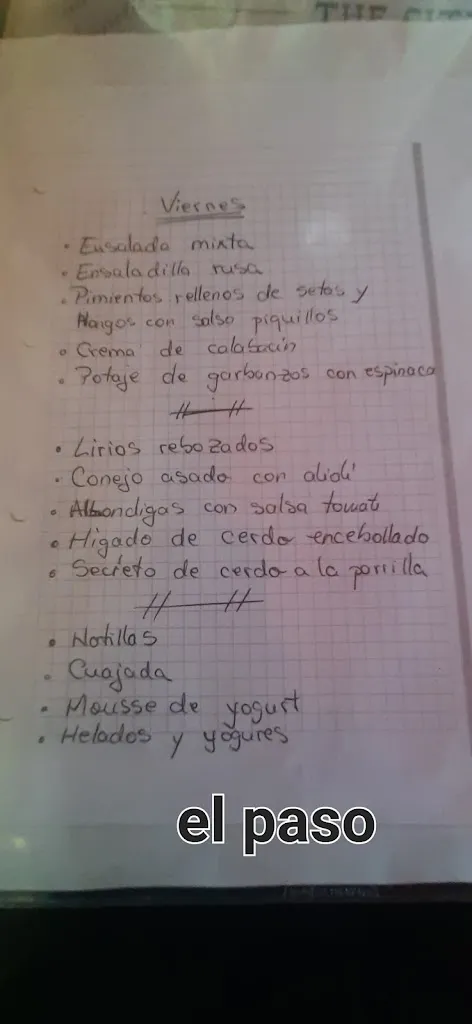 Viernes
• Ensalada mixta
• Ensaladilla rusa
• Pimientos rellenos de setas y
Mangos con salsa piquillos
• Crema de calabacín
• Potaje de garbanzos con espinaca
• Lirios rebozados
• Conejo asado con alioli
• Albondigas con salsa tomat
• Higado de cerdo encebollado
• Secreto de cerdo a la parrilla
• Natillas
• Cuajada
• Mousse de yogurt
• Helados y yogures
el paso